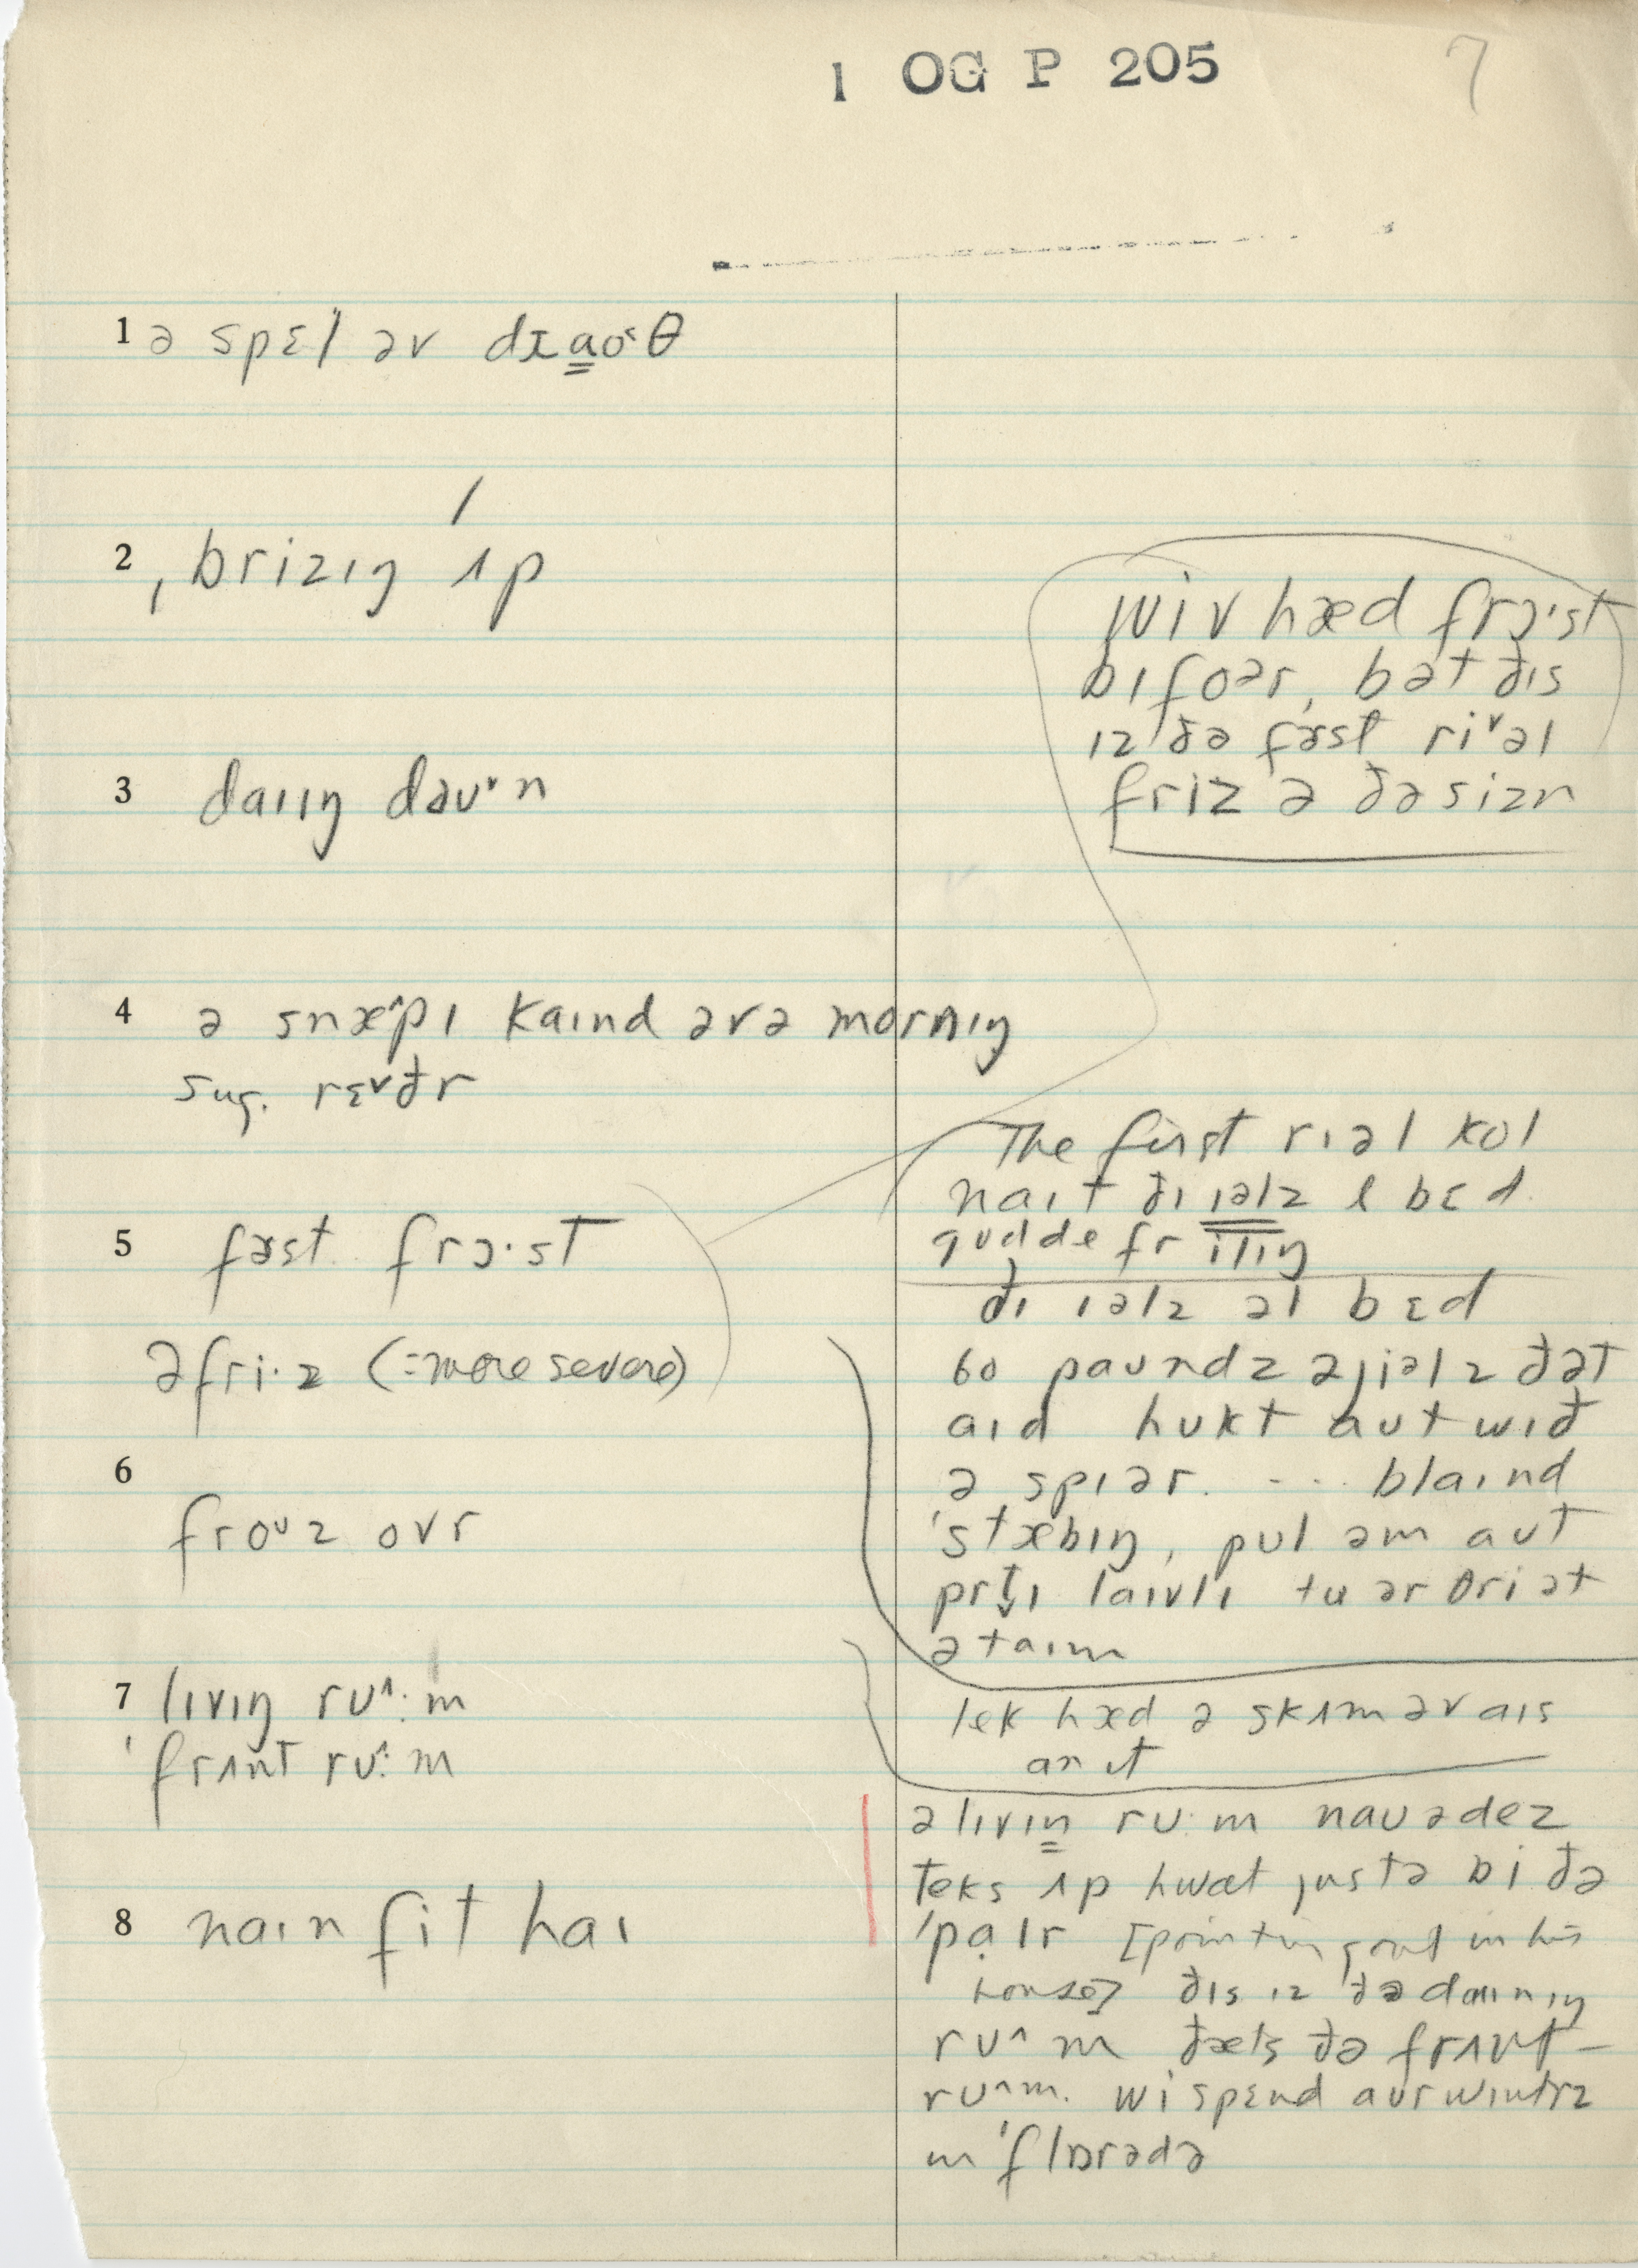 1 OG P 205 7
1 ə spɛl əv dɪa̳o˂θ
2 ˌbrizɪŋ ˈʌp
3 daɪɪŋ daʊ˅n
4 ə snæ^pɪ kaɪnd əvə mɔrnɪŋ
sug. rɛ˅ðr
5 fɚst frɔ·st
ə fri·z (= more severe)
6
froᶸz ovr
7 lɪvɪŋ rʊ^:m
ˈfrʌnt rʊ^:m
8 naɪn fit haɪ
wiv hæd frɔ·st
bɪfoər, bət ðɪs
ɪz ðə fɚst ri˅əl
friz ə ðə sizn
The first rɪəl kol
naɪt ðɪ ɪəlz l bɛd
gudde fr iliŋ
ðɪ ɪəlz əl bɛd
60 paʊndz əjiəlz ðət
aɪd hʊkt aʊt wɪð
ə spɪər. --- blaɪnd
ˈstæbɪŋ, pʊl əm aʊt
prt̬ɪ laɪvlɪ tu ər θri ət
ə taɪm
lek hæd ə skɪm əv aɪs
an ɪt
ə lɪvɪn̳ rʊ·m naʊədez
teks ʌp hwat justə bi ðə
ˈpalr [pointing out in his
house] ðɪs ɪz ðə daɪnɪŋ
rʊ^m ðæts ðə frʌnt-
rʊ^m. wi spɛnd aʊr wɪntrz
ɪn ˈflɒrədə